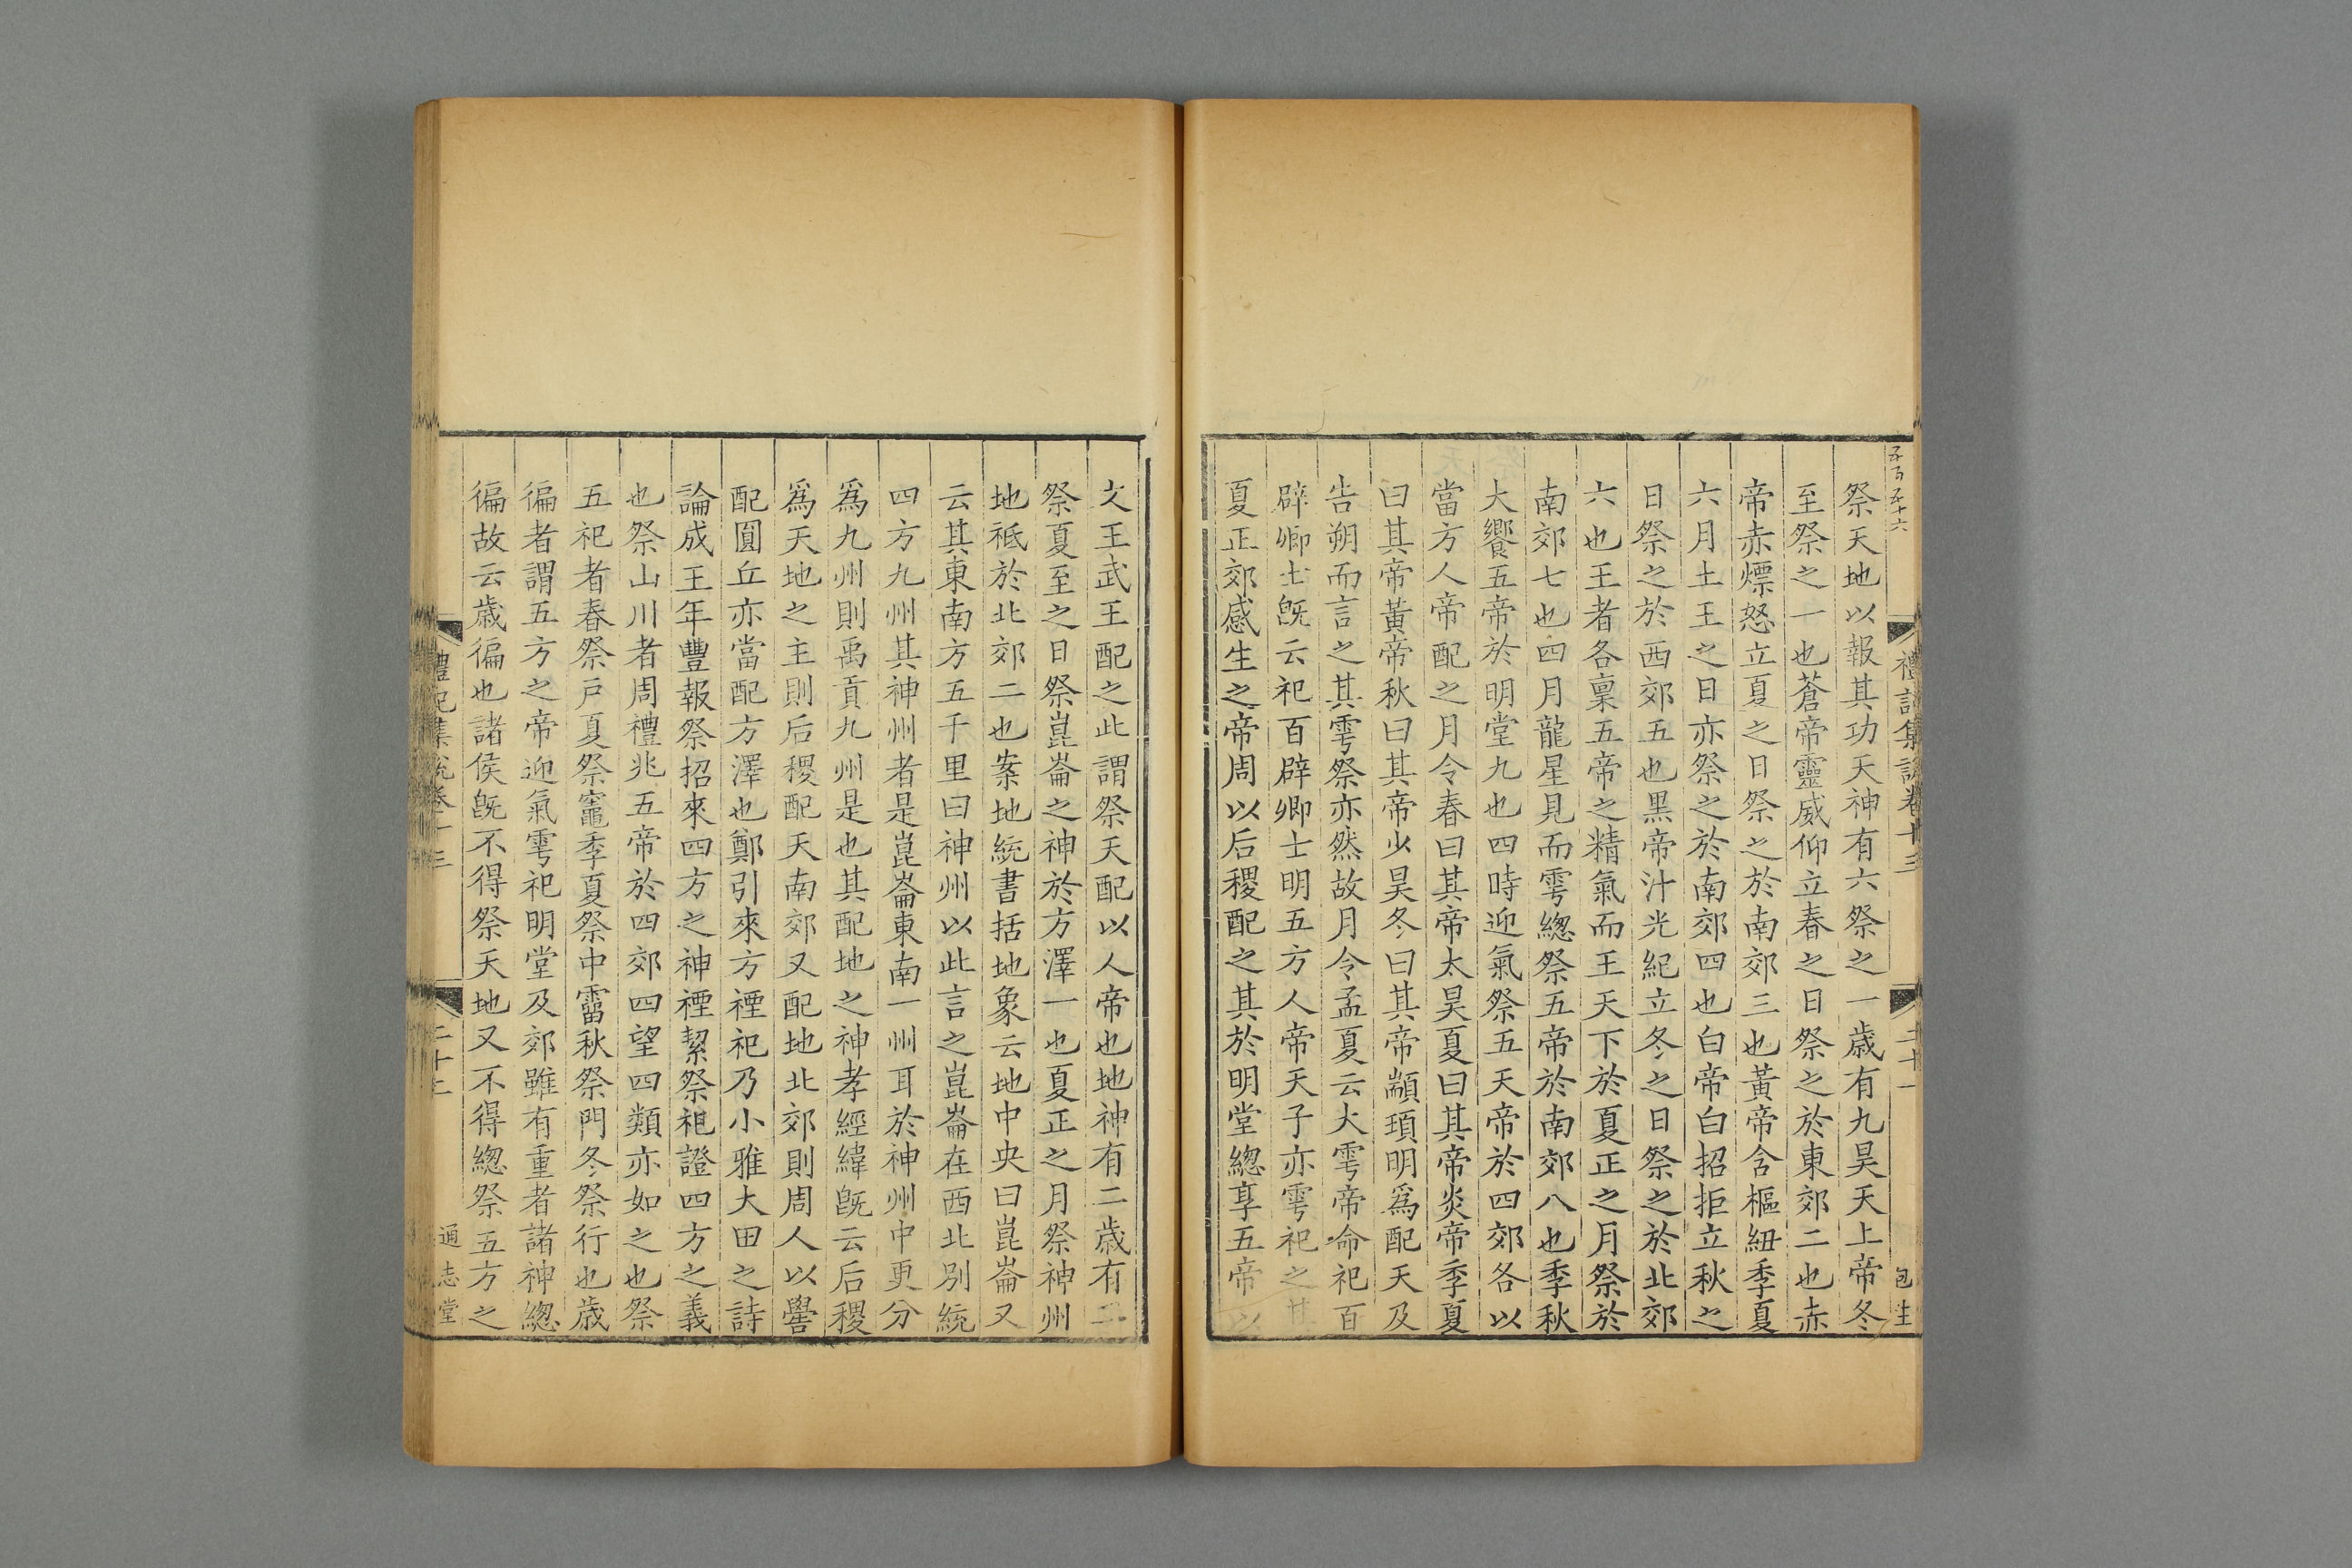 五百五十六
禮記集說卷十三
二十一
包生
祭天地以報其功天神有六祭之一歳有九昊天上帝冬
至祭之一也蒼帝靈威仰立春之日祭之於東郊二也赤
帝赤熛怒立夏之日祭之於南郊三也黃帝含樞紐季夏
六月土王之日亦祭之於南郊四也白帝白招拒立秋之
日祭之於西郊五也黒帝汁光紀立冬之日祭之於北郊
六也王者各稟五帝之精氣而王天下於夏正之月祭於
南郊七也四月龍星見而雩緫祭五帝於南郊八也季秋
大饗五帝於明堂九也四時迎氣祭五天帝於四郊各以
當方人帝配之月令春曰其帝太昊夏曰其帝炎帝季夏
曰其帝黃帝秋曰其帝少昊冬曰其帝顓頊明爲配天及
告朔而言之其雩祭亦然故月令孟夏云大雩帝命祀百
辟卿士旣云祀百辟卿士明五方人帝天子亦雩祀之其
夏正郊感生之帝周以后稷配之其於明堂緫享五帝以
文王武王配之此謂祭天配以人帝也地神有二歳有二
祭夏至之日祭崑崙之神於方澤一也夏正之月祭神州
地祗於北郊二也案地統書括地象云地中央曰崑崙又
云其東南方五千里曰神州以此言之崑崙在西北別統
四方九州其神州者是崑崙東南一州耳於神州中更分
爲九州則禹貢九州是也其配地之神孝經緯旣云后稷
爲天地之主則后稷配天南郊又配地北郊則周人以嚳
配圓丘亦當配方澤也鄭引來方禋祀乃小雅大田之詩
論成王年豐報祭招來四方之神禋絜祭祀證四方之義
也祭山川者周禮兆五帝於四郊四望四類亦如之也祭
五祀者春祭戸夏祭竈季夏祭中霤秋祭門冬祭行也歳
徧者謂五方之帝迎氣雩祀明堂及郊雖有重者諸神緫
徧故云歳徧也諸侯旣不得祭天地又不得緫祭五方之
禮記集說卷十三
二十二
通志堂